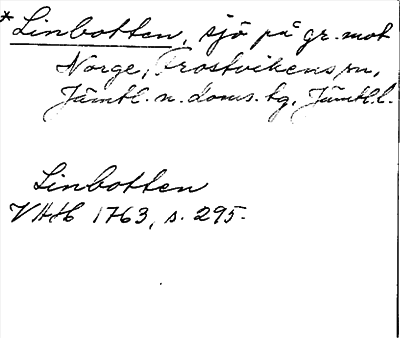 *Linbotten, sjö på gr. mot
Norge, Frostvikens sn,
Jämtl. n. doms. tg, Jämtl. l.
Linbotten
VAH 1763, s. 295.